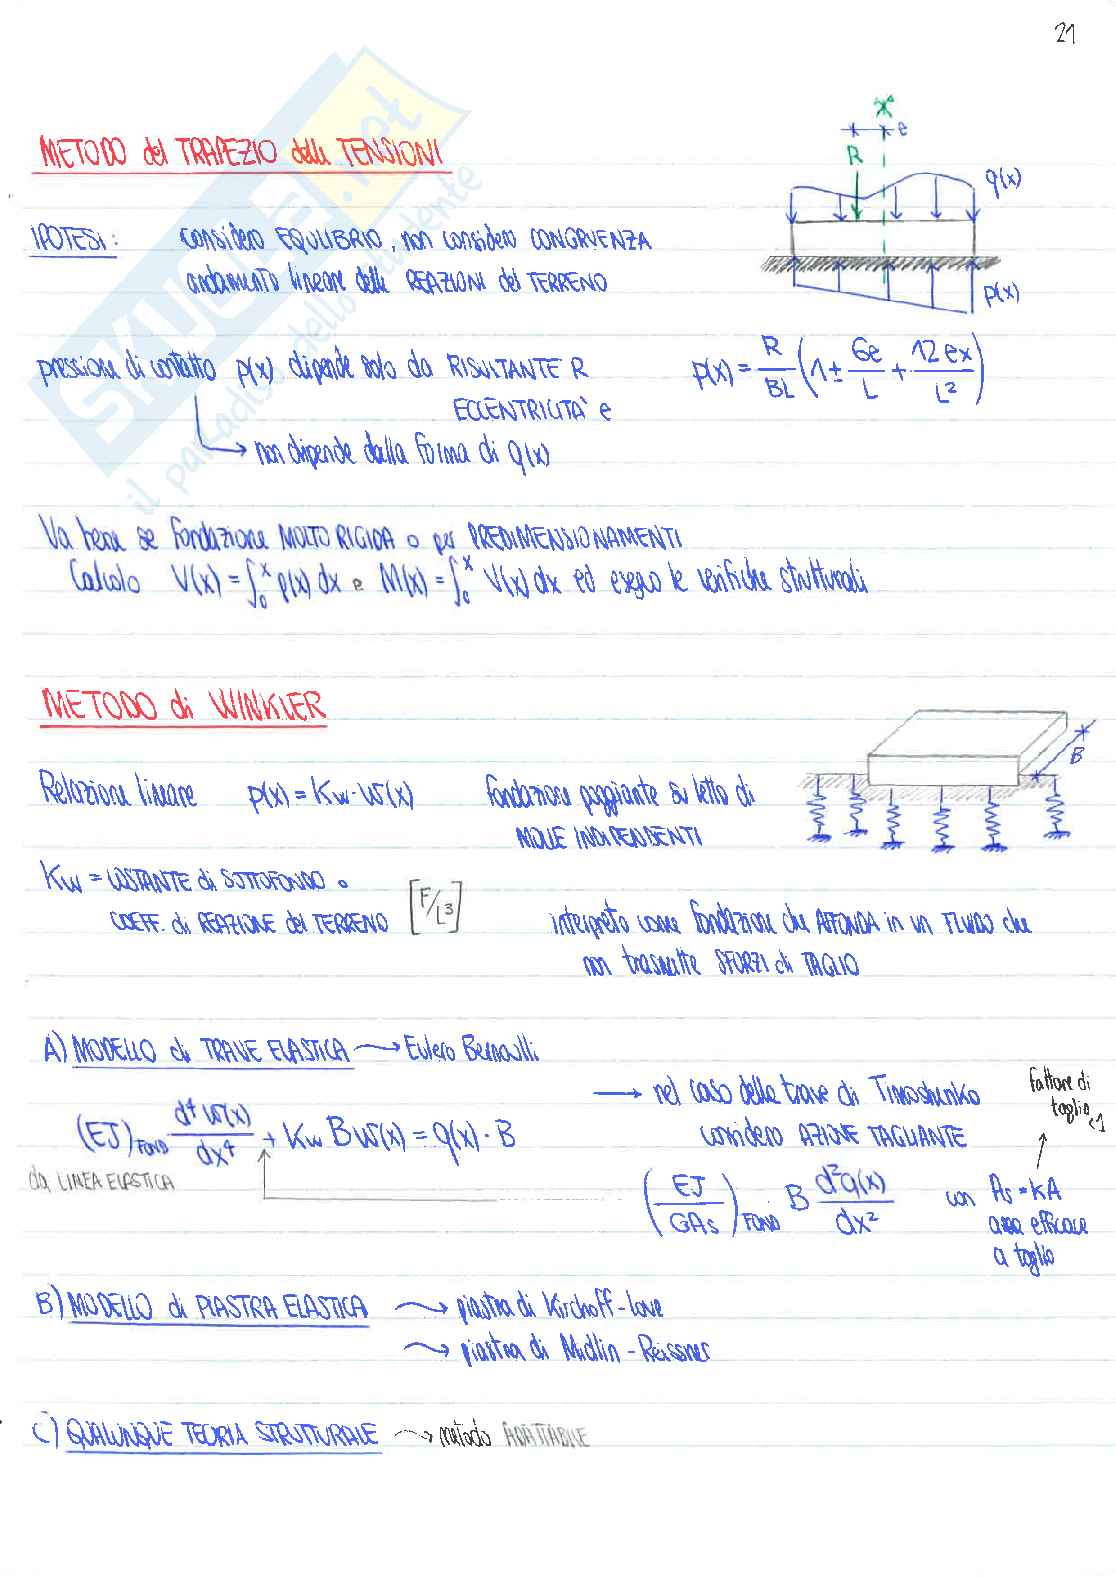 21
METODO del TRAPEZIO delle TENSIONI
e
R
q(x)
p(x)
IPOTESI: considero EQUILIBRIO, non considero CONGRUENZA
andamento lineare delle REAZIONI del TERRENO
pressione di contatto p(x) dipende solo da RISULTANTE R
ECCENTRICITA' e
p(x) = R/BL (1 ± 6e/L + 12ex/L²)
→ non dipende dalla forma di q(x)
Va bene se fondazione MOLTO RIGIDA o per PREDIMENSIONAMENTI
Calcolo V(x) = ∫₀ˣ p(x) dx e M(x) = ∫₀ˣ V(x) dx ed eseguo le verifiche strutturali
METODO di WINKLER
B
Relazione lineare p(x) = Kw · w(x) fondazione poggiante su letto di
MOLLE INDIPENDENTI
Kw = COSTANTE di SOTTOFONDO o
COEFF. di REAZIONE del TERRENO [F/L³]
interpreto come fondazione che AFFONDA in un FLUIDO che
non trasmette SFORZI di TAGLIO
A) MODELLO di TRAVE ELASTICA → Eulero Bernoulli
→ nel caso della trave di Timoshenko
considero AZIONE TAGLIANTE
fattore di
taglio <1
(EJ)FOND d⁴w(x)/dx⁴ + Kw B w(x) = q(x) · B
da LINEA ELASTICA
(EJ/GAs)FOND B d²q(x)/dx² con As = kA
area efficace
a taglio
B) MODELLO di PIASTRA ELASTICA → piastra di Kirchoff-Love
→ piastra di Midlin-Reissner
C) QUALUNQUE TEORIA STRUTTURALE → metodo ADATTABILE
SKUOLA.net
il paradiso dello studente